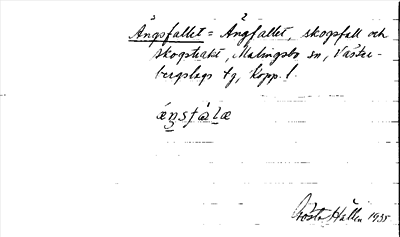 Ängsfallet = Ängfallet, skogsfall och
skogstrakt, Malingsbo sn, Väster-
bergslags tg, Kopp. l.
ǽŋsfàlæ
Gösta Hallin 1935